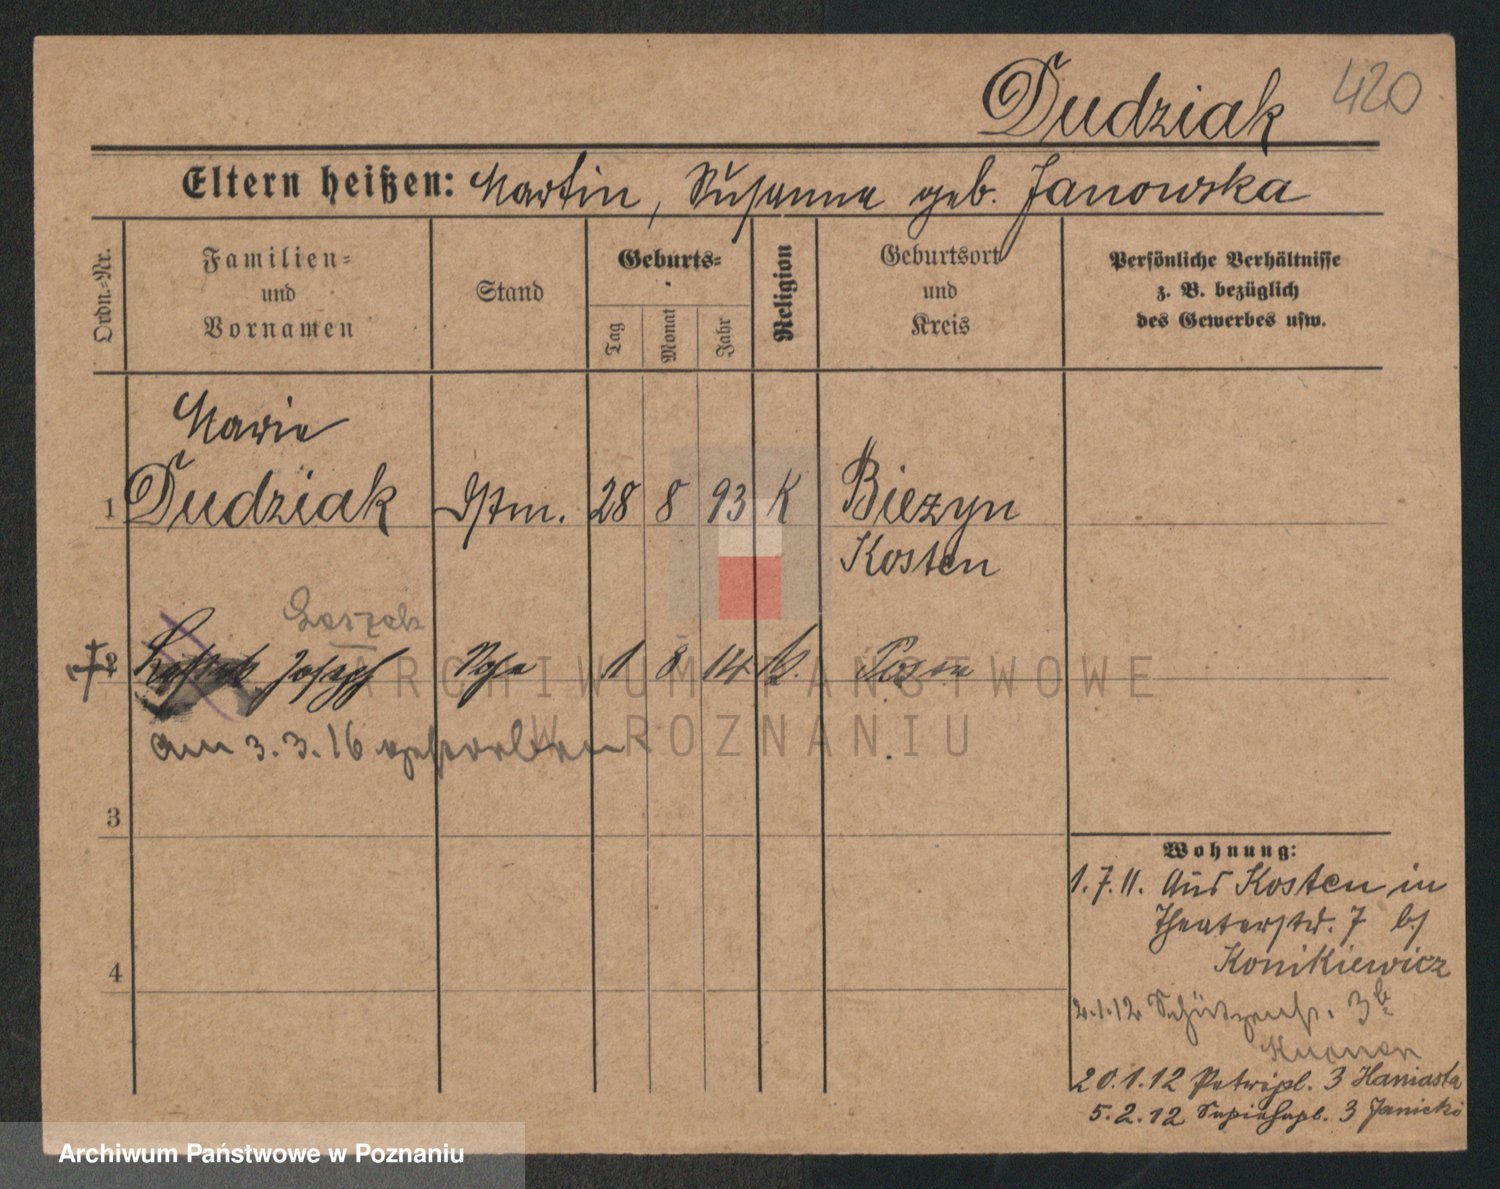 Dudziak 420
Eltern heißen: Martin, Susanna geb. Janowska
Ordn.-Nr.
Familien-
und
Vornamen
Stand
Geburts-
Tag
Monat
Jahr
Religion
Geburtsort
und
Kreis
Persönliche Verhältnisse
z. B. bezüglich
des Gewerbes usw.
Marie
1 Dudziak Dstm. 28 8 93 K Biezyn
Kosten
Leszek
2 Joseph 1 8 14 K. Posen
am 3.3.16 gestorben
3
4
Wohnung:
1.7.11. Aus Kosten in
Theaterstr. 7 b/
Konikiewicz
2.1.12 Schützenstr. 3b
20.1.12 Petripl. 3 Haniasta
5.2.12 Sapiehapl. 3 Janicki
ARCHIWUM PAŃSTWOWE
W POZNANIU
Archiwum Państwowe w Poznaniu